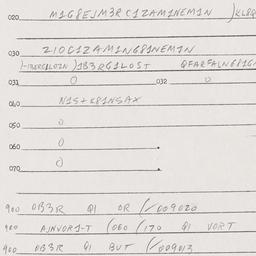 020 M1G8EJM3RC1ZAM1NEM1N )KL8R
030 Z10C1ZAM1NG81NEM1N
)1B3RG1LOST QFARFALNG81G
031 0 032 0
040 N1S+K81NSAX
050 0
060 0
070 0
900 OB3R Q1 OR (/009020
900 AJNVOR1-T (060 /170 Q1 VORT
900 OB3R Q1 BUT (/009013